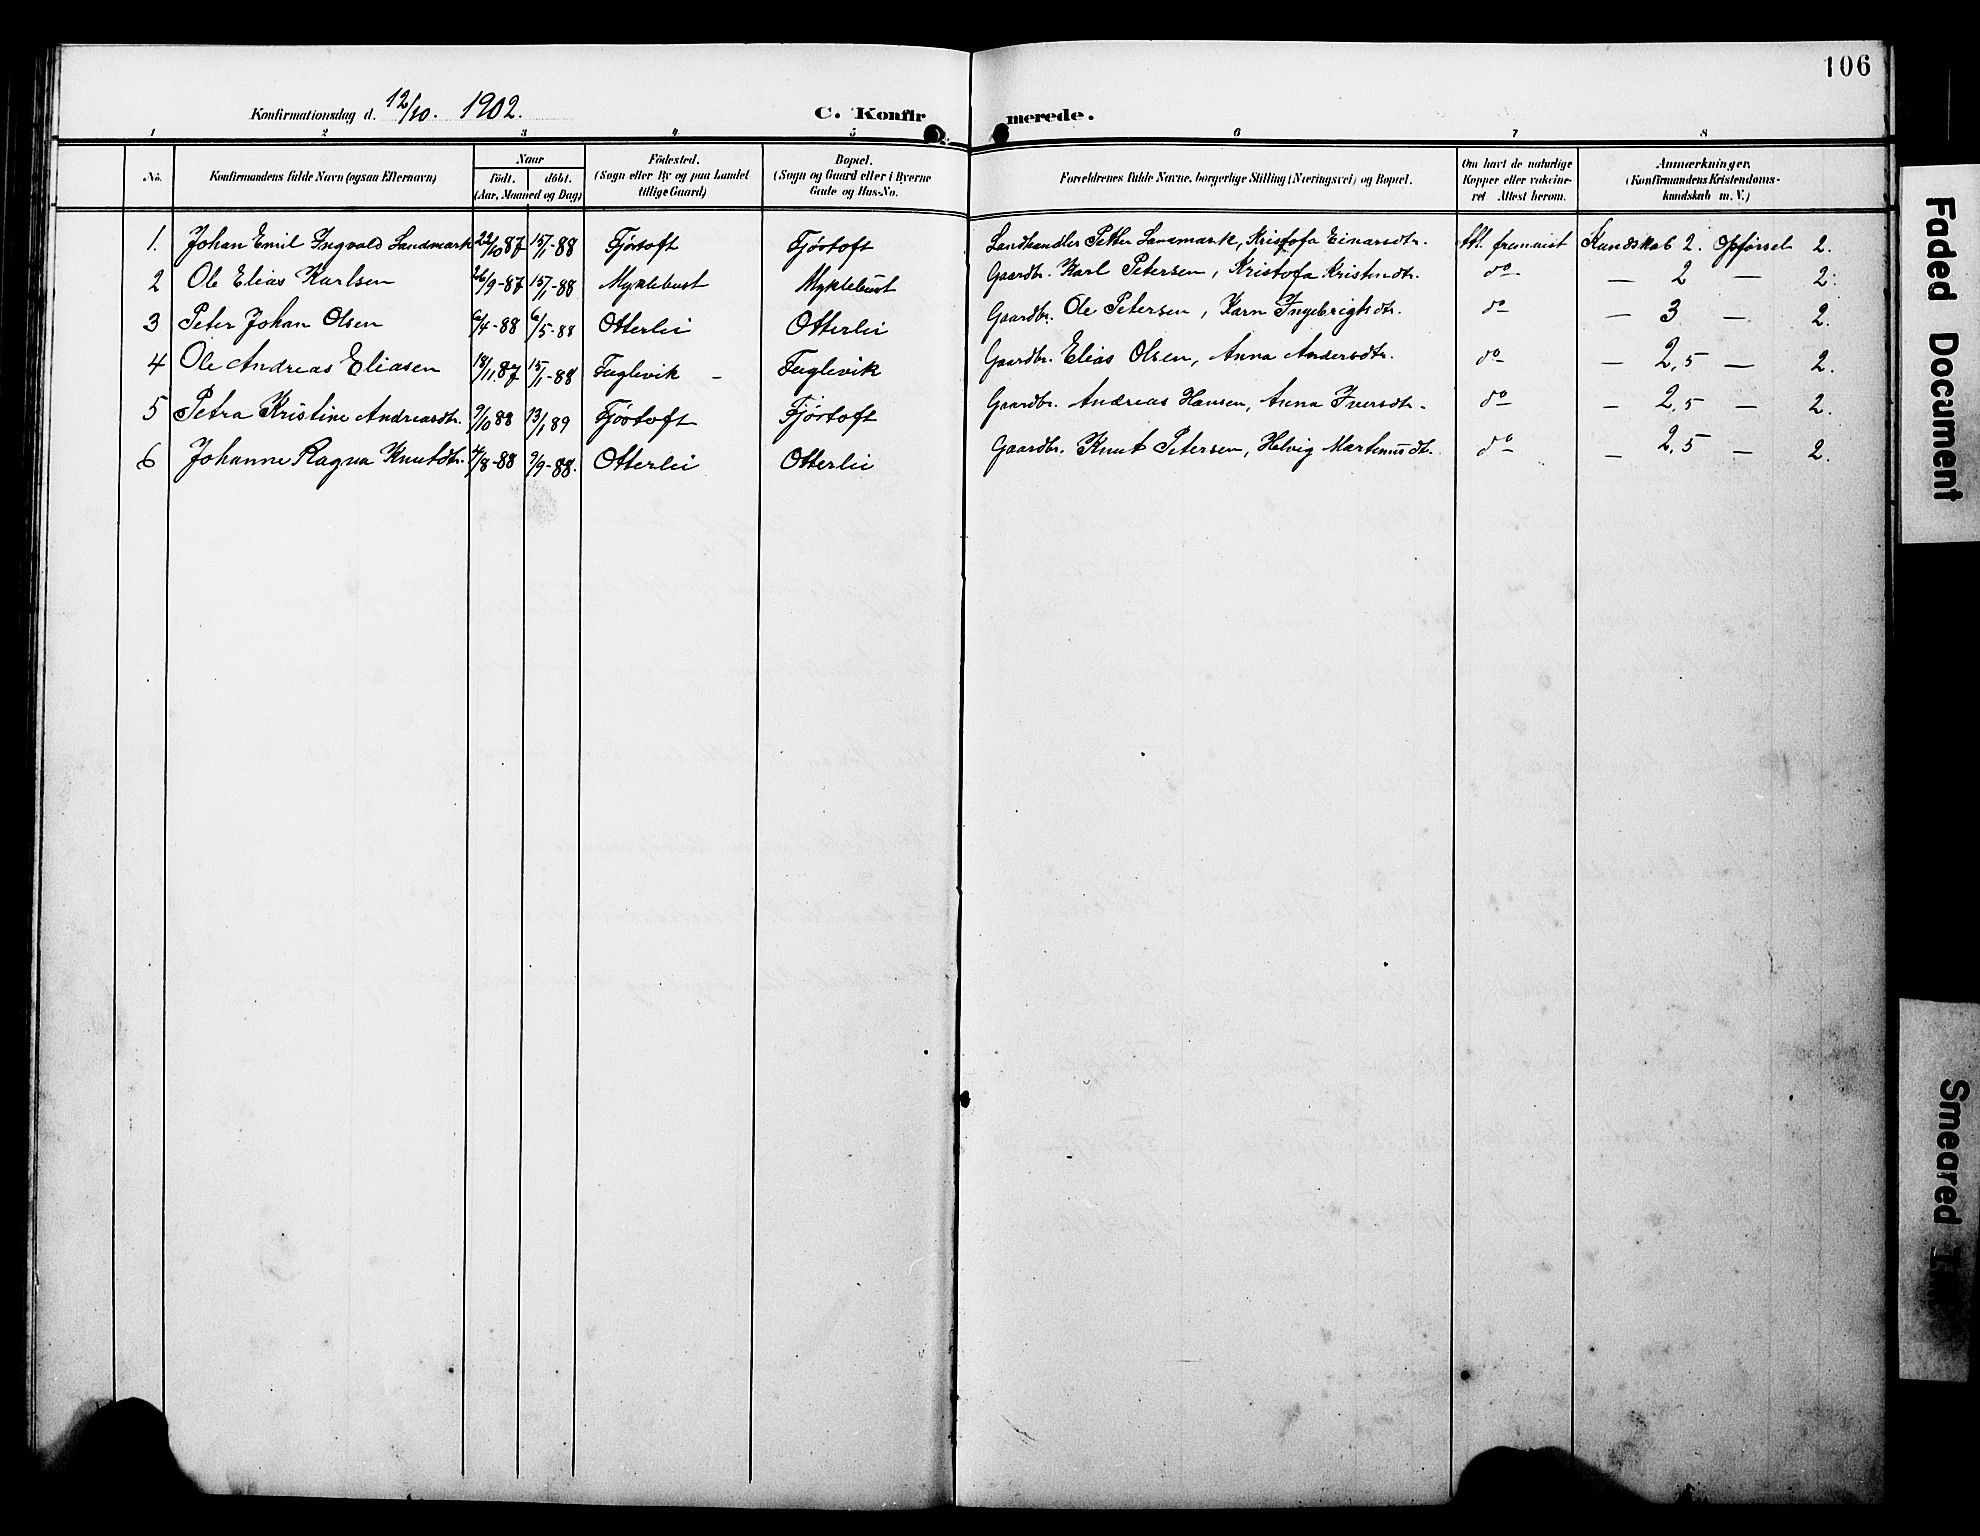 106
Konfirmationsdag d. 12/10. 1902. C. Konfirmerede.
1 2 3 4 5 6 7 8
No. Konfirmandens fulde Navn (ogsaa Efternavn) Naar Födt. döbt. (Aar, Maaned og Dag) Födested. (Sogn eller By og paa Landet tillige Gaard) Bopæl. (Sogn og Gaard eller i Byerne Gade og Hus-No. Forældrenes fulde Navne, borgerlige Stilling (Næringsvei) og Bopæl. Om havt de naturlige Kopper eller vakcineret Attest herom. Anmærkninger. (Konfirmandens Kristendomskundskab m. V.)
1. Johan Emil Ingvald Landmark 22/10 87 15/1-88 Fjörtoft Fjörtoft Landhandler Petter Landmark, Kristofa Einarsdtr. Att. fremvist Kundskab 2. Opførsel 2.
2 Ole Elias Karlsen 26/9-87 15/1-88 Myklebust Myklebust Gaardbr. Karl Petersen, Kristofa Kristendtr. do — 2 — 2.
3 Peter Johan Olsen 6/4-88 6/5-88 Otterlei Otterlei Gaardbr. Ole Petersen, Karn Ingebrigtsdtr. do — 3 — 2.
4 Ole Andreas Eliasen 18/11.87 15/1-88 Fuglevik - Fuglevik Gaardbr. Elias Olsen, Anna Andersdtr. do — 2,5 — 2.
5 Petra Kristine Andreasdtr. 9/10 88 13/1 89 Fjörtoft Fjörtoft Gaardbr. Andreas Hansen, Anna Iversdtr. do — 2,5 — 2.
6 Johanne Ragna Knutdtr. 4/8-88 9/9-88. Otterlei Otterlei Gaardbr. Knut Petersen, Helvig Martinusdtr. do — 2,5 — 2.
Faded Document
Smeared